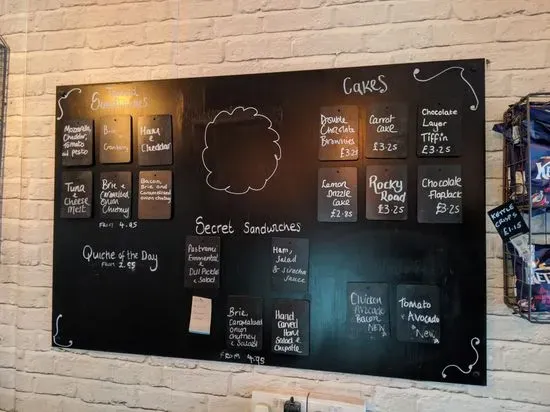 Toasted
Sandwiches
Mozzarella,
Cheddar,
Tomato
and pesto
Brie
&
Cranberry
Ham &
Cheddar
Tuna &
Cheese
Melt
Brie &
Caramelised
Onion
Chutney
Bacon,
Brie and
Caramelised
onion chutney
FROM 4.95
Quiche of the Day
FROM £
Cakes
Double
Chocolate
Brownies
£3.25
Carrot
Cake
£3.25
Chocolate
Layer
Tiffin
£3.25
Lemon
Drizzle
Cake
£2.85
Rocky
Road
£3.25
Chocolate
Flapjack
£3.25
Secret Sandwiches
Pastrami
Emmental
&
Dill Pickle
& Salad
Ham,
Salad
&
Sriracha
Sauce
Brie
Caramelised
Onion
Chutney
& Salad
Hand
Carved
Ham
Salad &
Chipotle
FROM 4.95
Chicken
Avocado
Bacon
NEW
Tomato
&
Avocado
New
KETTLE
CRISPS
£1.15